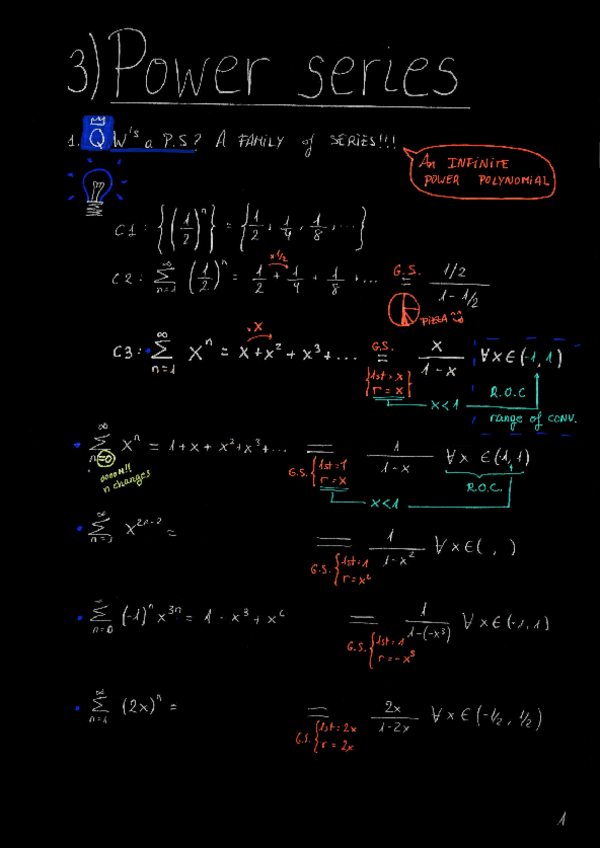 3) Power series
1. Q W's a P.S? A FAMILY of SERIES!!!
An INFINITE
POWER POLYNOMIAL
C1: {(1/2)^n} = {1/2, 1/4, 1/8, ...}
C2: ∑_{n=1}^{∞} (1/2)^n = 1/2 + 1/4 + 1/8 + ... = (1/2)/(1 - 1/2)
×1/2
G.S.
PIZZA
C3: ∑_{n=1}^{∞} X^n = X + X² + X³ + ... = X/(1-X) ∀x∈(-1,1)
·X
G.S.
{1st = x
r = x}
x<1
R.O.C
range of CONV.
∑_{n=0}^{∞} X^n = 1 + x + x² + x³ + ... = 1/(1-x) ∀x ∈(-1,1)
ooooH!!
n changes
G.S. {1st=1
r = x
x<1
R.O.C.
∑_{n=1}^{∞} X^{2n-2} = = 1/(1-x²) ∀x∈( , )
G.S. {1st=1
r=x²
∑_{n=0}^{∞} (-1)^n x^{3n} = 1 - x³ + x⁶ = 1/(1-(-x³)) ∀x∈(-1,1)
G.S. {1st=1
r=-x³
∑_{n=1}^{∞} (2x)^n = = 2x/(1-2x) ∀x∈(-1/2, 1/2)
G.S. {1st=2x
r = 2x
1